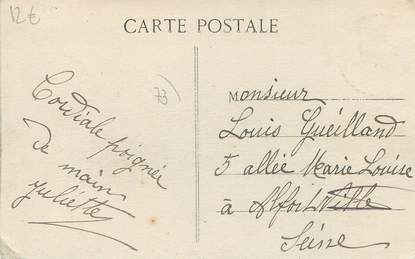 12€
CARTE POSTALE
73
Cordiale poignée
de main
Juliette
Monsieur
Louis Gueilland
5 allée Marie Louise
à Alfortville
Seine